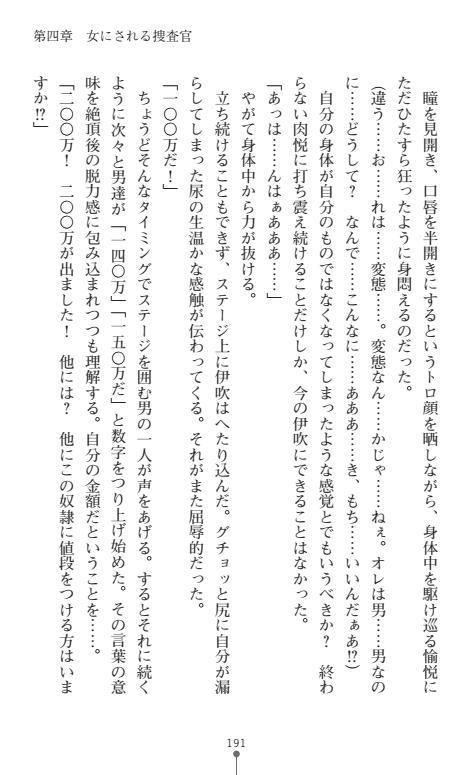 第四章　女にされる捜査官
　瞳を見開き、口唇を半開きにするというトロ顔を晒しながら、身体中を駆け巡る愉悦に
ただひたすら狂ったように身悶えるのだった。
（違う……お……れは……変態……。変態なん……かじゃ……ねぇ。オレは男……男なの
に……どうして？　なんで……こんなに……あああ……き、もち……いいんだぁあ!?）
　自分の身体が自分のものではなくなってしまったような感覚とでもいうべきか？　終わ
らない肉悦に打ち震え続けることだけしか、今の伊吹にできることはなかった。
「あっは……んはぁあああ……」
　やがて身体中から力が抜ける。
　立ち続けることもできず、ステージ上に伊吹はへたり込んだ。グチョッと尻に自分が漏
らしてしまった尿の生温かな感触が伝わってくる。それがまた屈辱的だった。
「一〇〇万だ！」
　ちょうどそんなタイミングでステージを囲む男の一人が声をあげる。するとそれに続く
ように次々と男達が「一四〇万」「一五〇万だ」と数字をつり上げ始めた。その言葉の意
味を絶頂後の脱力感に包み込まれつつも理解する。自分の金額だということを……。
「二〇〇万！　二〇〇万が出ました！　他には？　他にこの奴隷に値段をつける方はいま
すか!?」
191